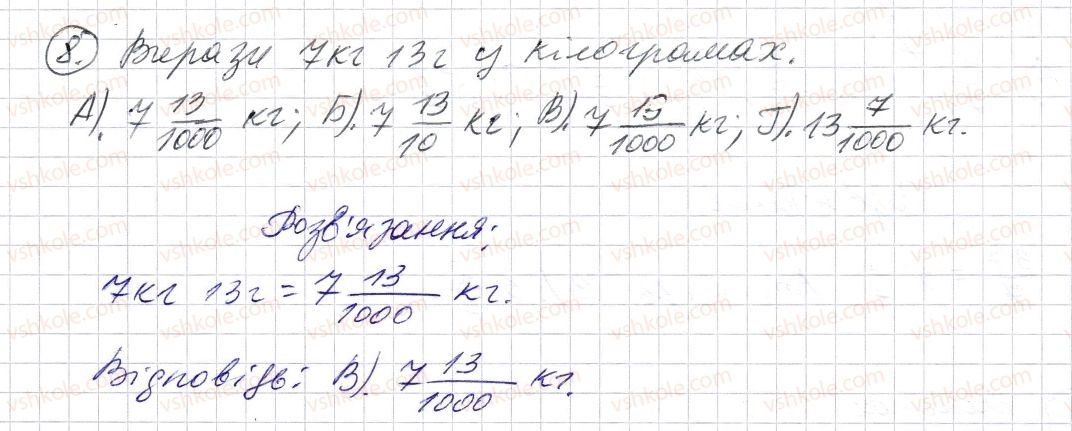 8. Вирази 7кг 13г у кілограмах.
А). 7 13/1000 кг; Б). 7 13/10 кг; В). 7 15/1000 кг; Г). 13 7/1000 кг.
Розв'язання:
7кг 13г = 7 13/1000 кг.
Відповідь: В). 7 13/1000 кг.